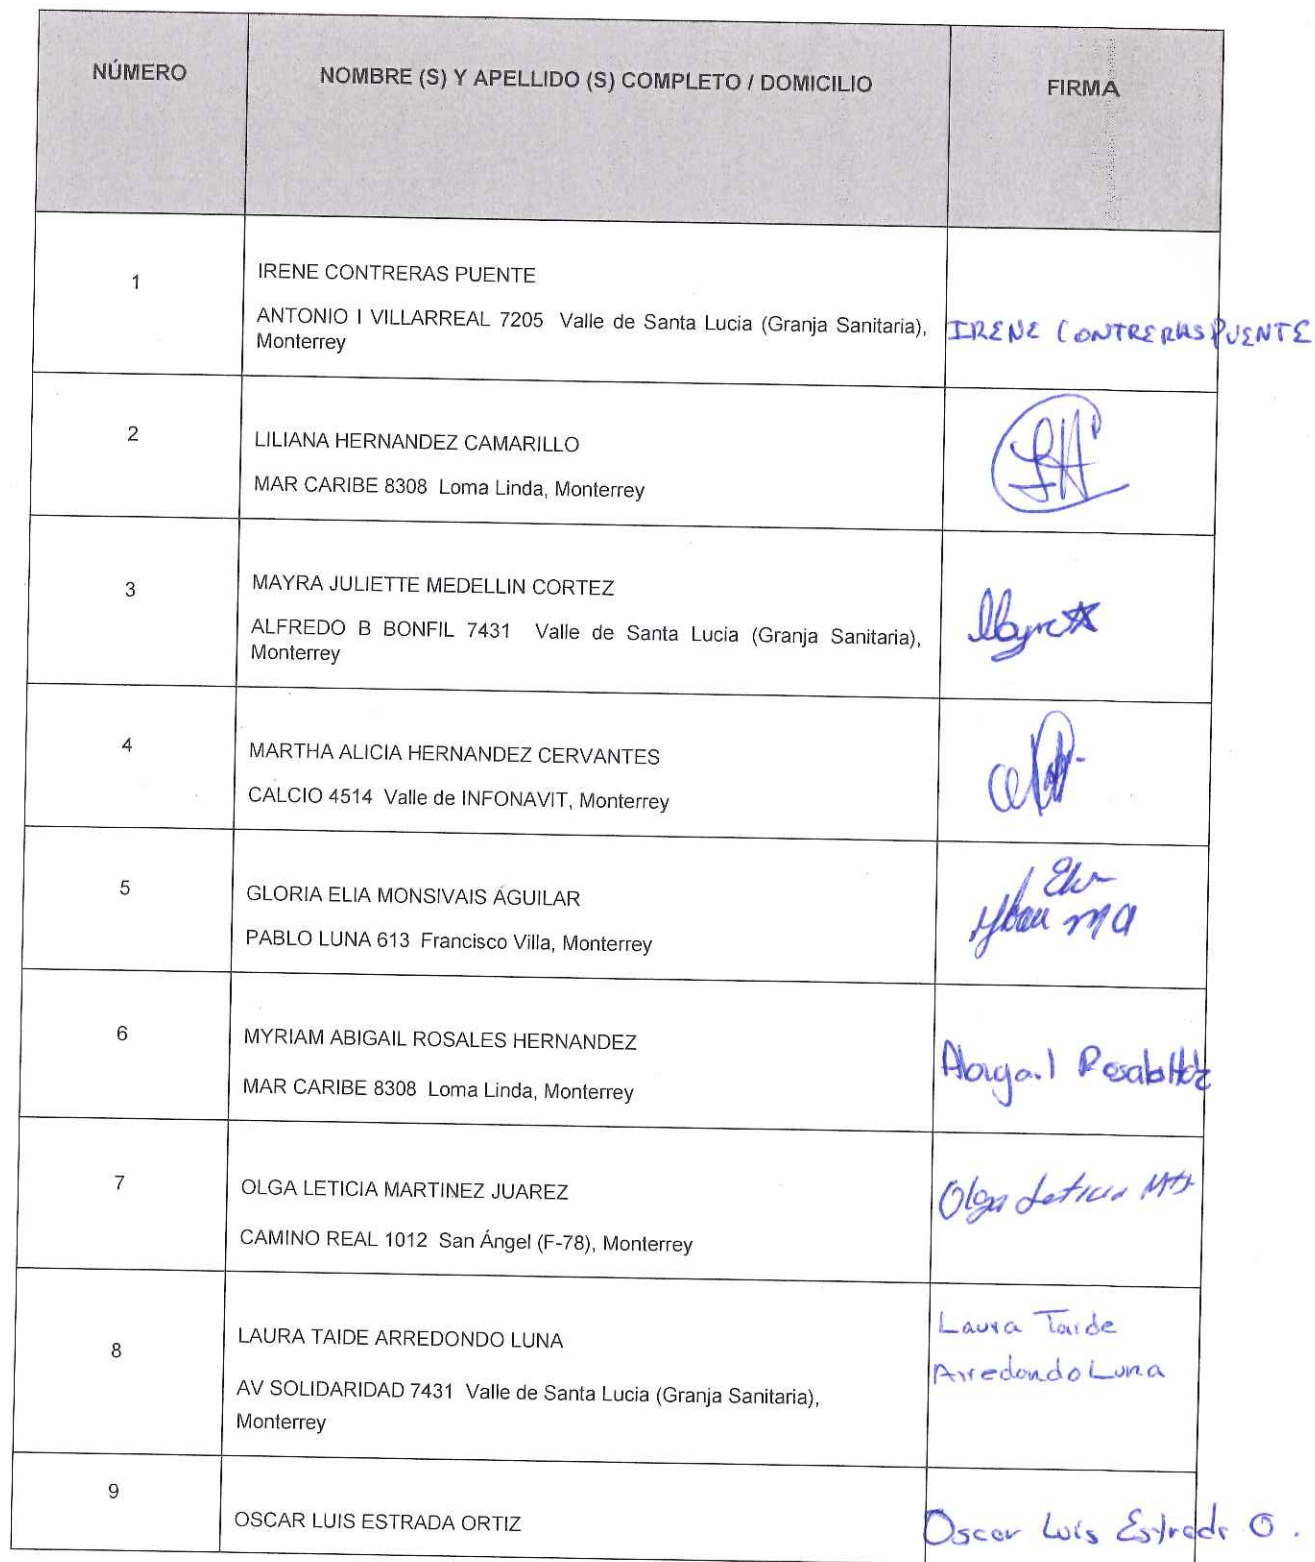 NÚMERO
NOMBRE (S) Y APELLIDO (S) COMPLETO / DOMICILIO
FIRMA
1
IRENE CONTRERAS PUENTE
ANTONIO I VILLARREAL 7205 Valle de Santa Lucia (Granja Sanitaria),
Monterrey
IRENE CONTRERAS PUENTE
2
LILIANA HERNANDEZ CAMARILLO
MAR CARIBE 8308 Loma Linda, Monterrey
3
MAYRA JULIETTE MEDELLIN CORTEZ
ALFREDO B BONFIL 7431 Valle de Santa Lucia (Granja Sanitaria),
Monterrey
4
MARTHA ALICIA HERNANDEZ CERVANTES
CALCIO 4514 Valle de INFONAVIT, Monterrey
5
GLORIA ELIA MONSIVAIS AGUILAR
PABLO LUNA 613 Francisco Villa, Monterrey
MA
6
MYRIAM ABIGAIL ROSALES HERNANDEZ
MAR CARIBE 8308 Loma Linda, Monterrey
Abigail
7
OLGA LETICIA MARTINEZ JUAREZ
CAMINO REAL 1012 San Ángel (F-78), Monterrey
Olga Leticia
8
LAURA TAIDE ARREDONDO LUNA
AV SOLIDARIDAD 7431 Valle de Santa Lucia (Granja Sanitaria),
Monterrey
Laura Taide
Arredondo Luna
9
OSCAR LUIS ESTRADA ORTIZ
Oscar Luis Estrada O.